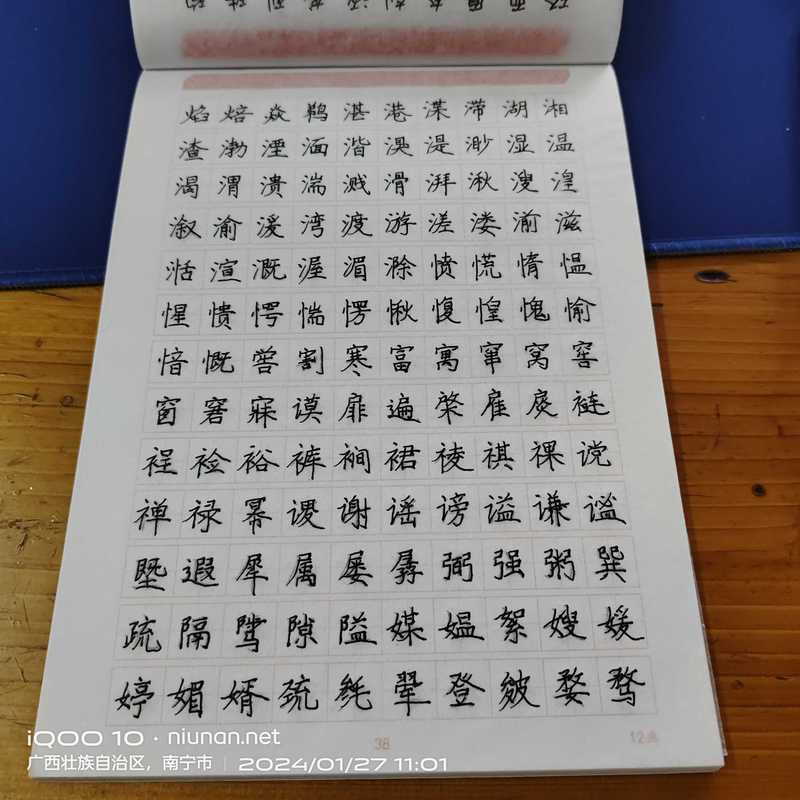 焰焙焱鹈湛港渫滞湖湘
渣渤湮湎湝湨湜渺湿温
渴渭溃湍溅滑湃湫溲湟
溆渝湲湾渡游溠溇湔滋
湉渲溉渥湄滁愤慌惰愠
惺愦愕惴愣愀愎惶愧愉
愔慨喾割寒富寓窜窝窖
窗窘寐谟扉遍棨雇扊裢
裎裣裕裤裥裙祾祺祼谠
禅禄幂谡谢谣谤谥谦谧
塈遐犀属屡孱弼强粥巽
疏隔骘隙隘媒媪絮嫂媛
婷媚婿巯毵翚登皴婺骛
38 12画
iQOO 10 · niunan.net
广西壮族自治区，南宁市 | 2024/01/27 11:01